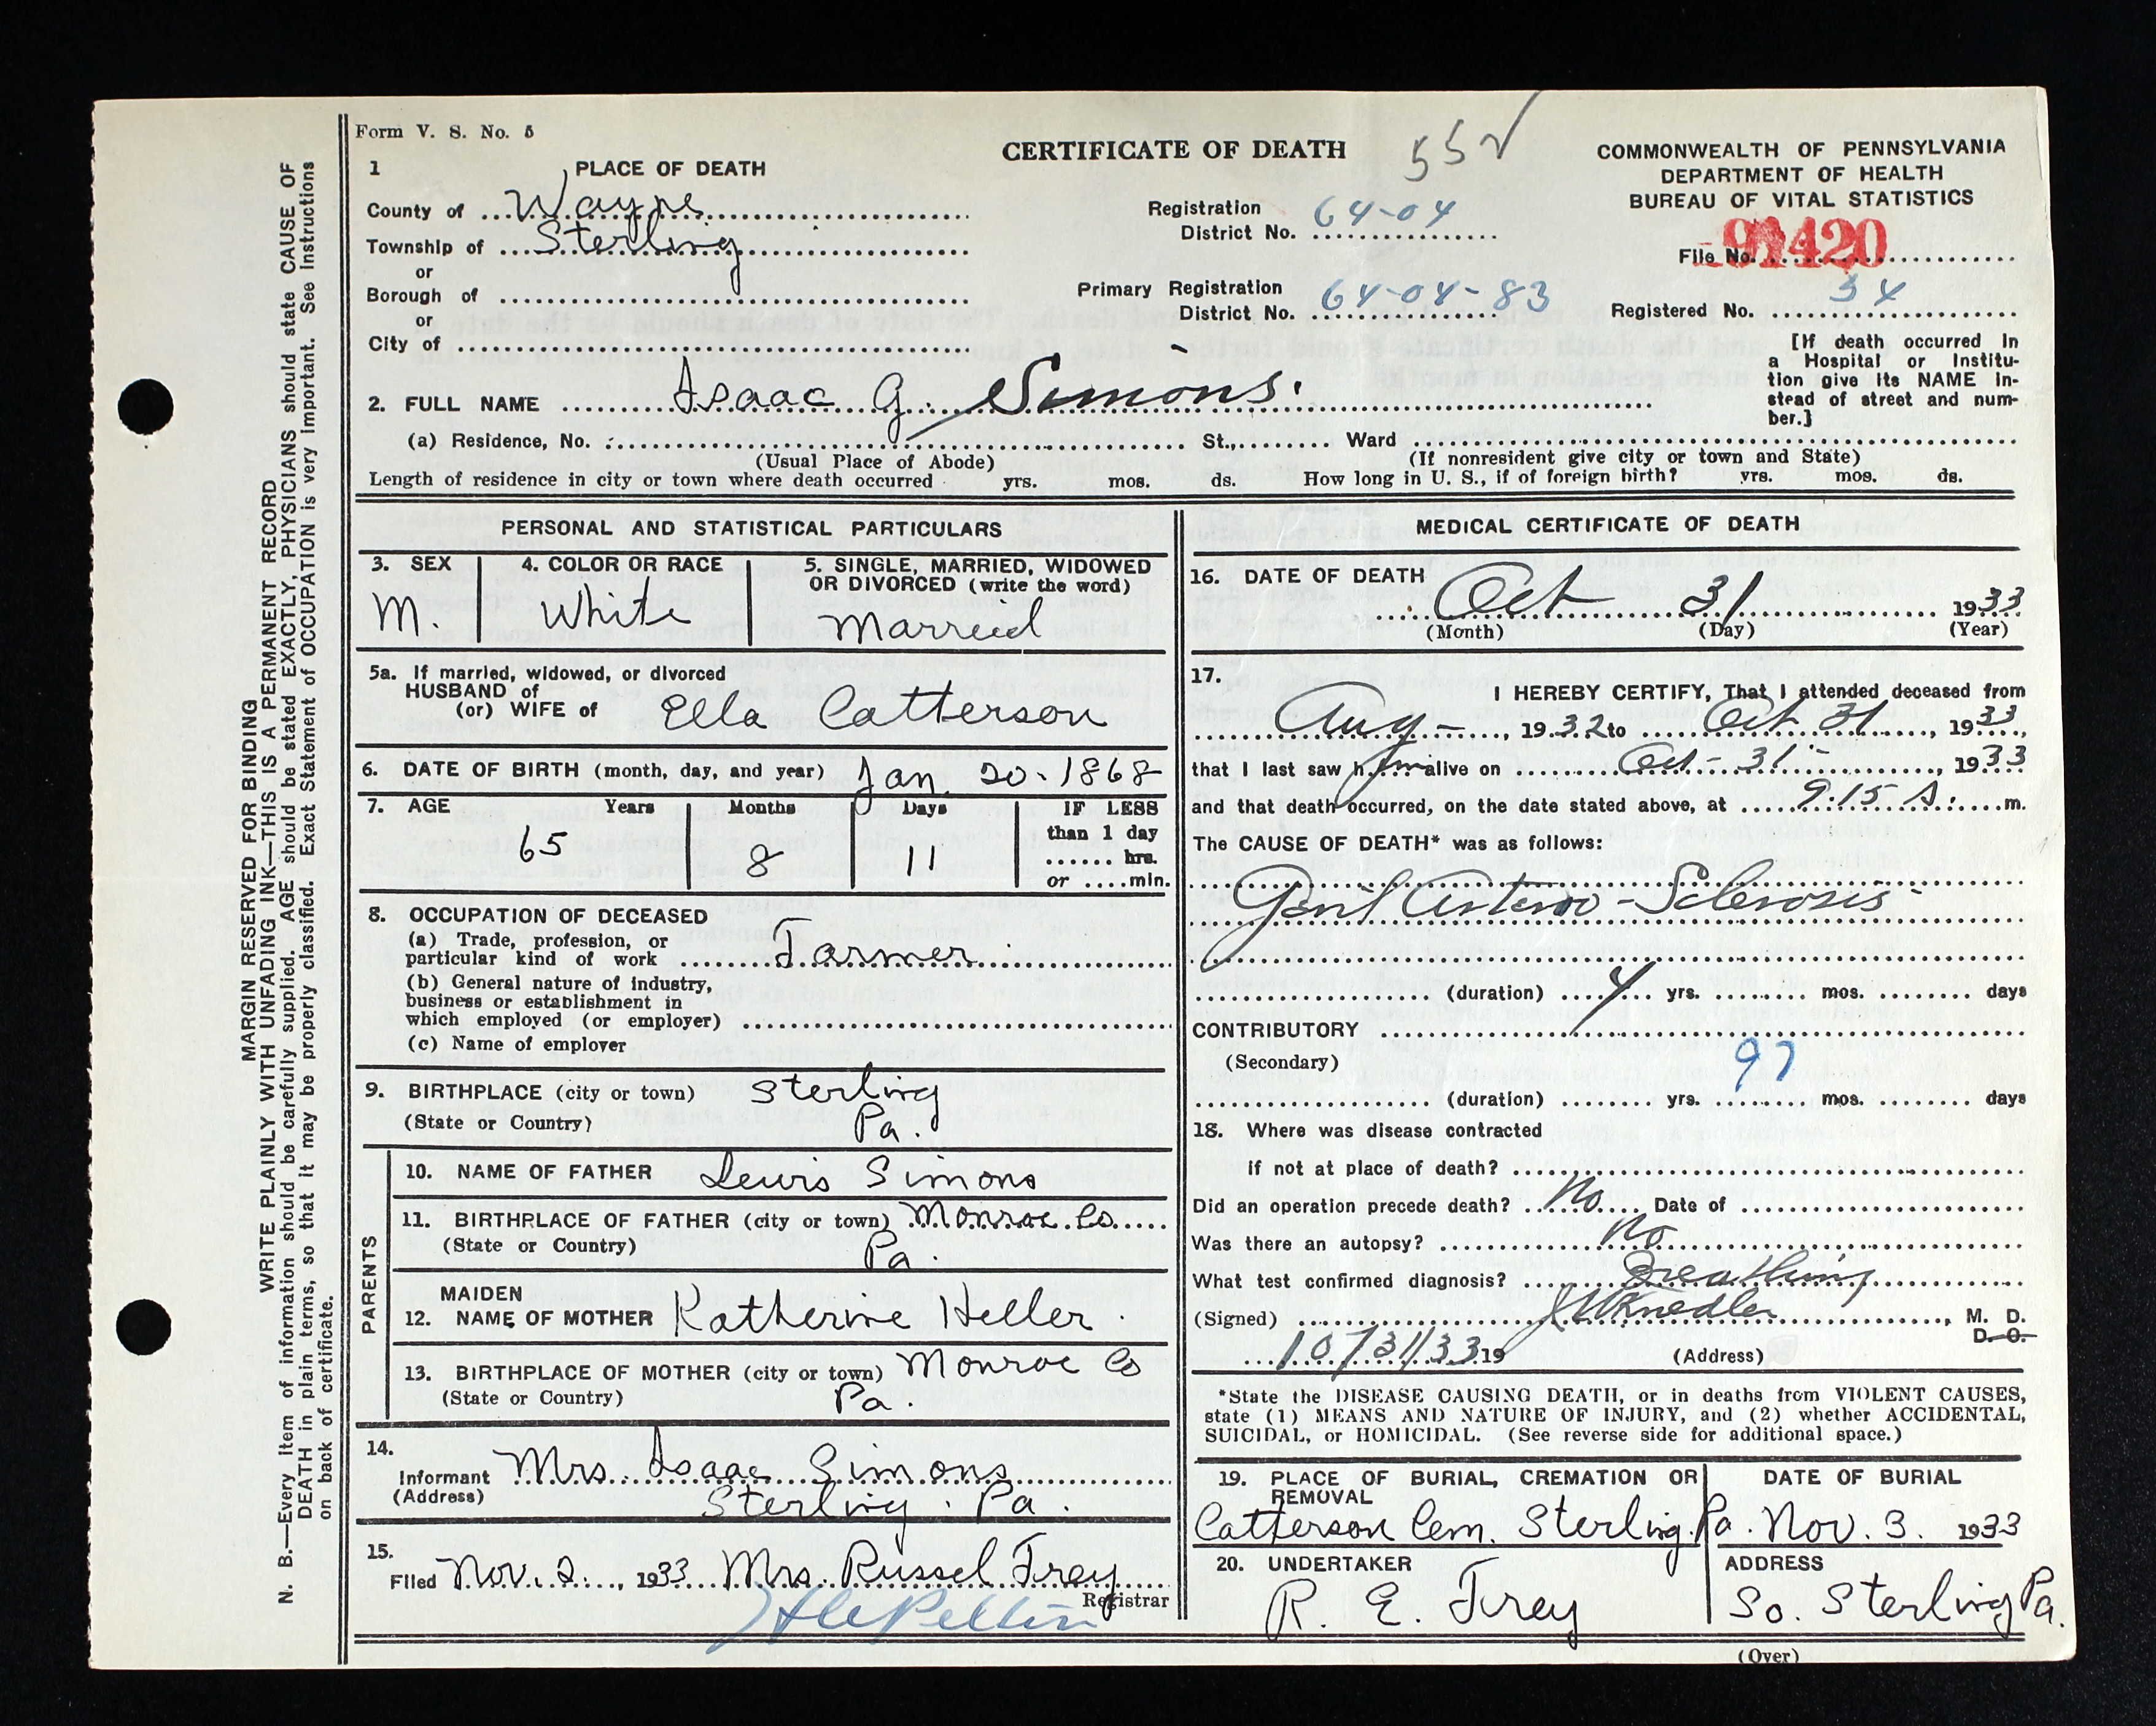 Form V. S. No. 5
CERTIFICATE OF DEATH
55
COMMONWEALTH OF PENNSYLVANIA
DEPARTMENT OF HEALTH
BUREAU OF VITAL STATISTICS
File No. 91420
Registered No. 34
1 PLACE OF DEATH
County of Wayne
Township of Sterling
or
Borough of
or
City of
Registration
District No. 64-04
Primary Registration
District No. 64-04-83
[If death occurred in
a Hospital or Institu-
tion give its NAME in-
stead of street and num-
ber.]
2. FULL NAME Isaac G. Simons.
(a) Residence, No. St., Ward
(Usual Place of Abode) (If nonresident give city or town and State)
Length of residence in city or town where death occurred yrs. mos. ds. How long in U. S., if of foreign birth? yrs. mos. ds.
PERSONAL AND STATISTICAL PARTICULARS
3. SEX 4. COLOR OR RACE 5. SINGLE, MARRIED, WIDOWED
OR DIVORCED (write the word)
M. White Married
5a. If married, widowed, or divorced
HUSBAND of
(or) WIFE of Ella Catterson
6. DATE OF BIRTH (month, day, and year) Jan. 20 - 1868
7. AGE Years Months Days IF LESS
than 1 day
65 8 11
hrs.
or min.
8. OCCUPATION OF DECEASED
(a) Trade, profession, or
particular kind of work Farmer
(b) General nature of industry,
business or establishment in
which employed (or employer)
(c) Name of employer
9. BIRTHPLACE (city or town) Sterling
(State or Country) Pa.
PARENTS
10. NAME OF FATHER Lewis Simons
11. BIRTHPLACE OF FATHER (city or town) Monroe Co
(State or Country) Pa.
MAIDEN
12. NAME OF MOTHER Katherine Heller
13. BIRTHPLACE OF MOTHER (city or town) Monroe Co
(State or Country) Pa.
14.
Informant Mrs. Isaac Simons
(Address) Sterling, Pa.
15.
Filed Nov. 2, 1933 Mrs. Russel Frey
Registrar
MEDICAL CERTIFICATE OF DEATH
16. DATE OF DEATH
Oct 31 1933
(Month) (Day) (Year)
17.
I HEREBY CERTIFY, That I attended deceased from
Aug - , 1932 to Oct 31 , 1933,
that I last saw him alive on Oct - 31 - , 1933
and that death occurred, on the date stated above, at 9:15 A. m.
The CAUSE OF DEATH* was as follows:
Genl Arterio-Sclerosis
(duration) 4 yrs. mos. days
CONTRIBUTORY
(Secondary)
97
(duration) yrs. mos. days
18. Where was disease contracted
if not at place of death?
Did an operation precede death? No Date of
Was there an autopsy? No
What test confirmed diagnosis? Breathing
(Signed) Knedler, M. D.
D. O.
10/31/33 19 (Address)
*State the DISEASE CAUSING DEATH, or in deaths from VIOLENT CAUSES,
state (1) MEANS AND NATURE OF INJURY, and (2) whether ACCIDENTAL,
SUICIDAL, or HOMICIDAL. (See reverse side for additional space.)
19. PLACE OF BURIAL, CREMATION OR
REMOVAL
DATE OF BURIAL
Catterson Cem. Sterling, Pa. Nov. 3. 1933
20. UNDERTAKER ADDRESS
R. E. Frey So. Sterling Pa.
(Over)
MARGIN RESERVED FOR BINDING
WRITE PLAINLY WITH UNFADING INK—THIS IS A PERMANENT RECORD
N. B.—Every item of information should be carefully supplied. AGE should be stated EXACTLY. PHYSICIANS should state CAUSE OF
DEATH in plain terms, so that it may be properly classified. Exact Statement of OCCUPATION is very important. See instructions
on back of certificate.